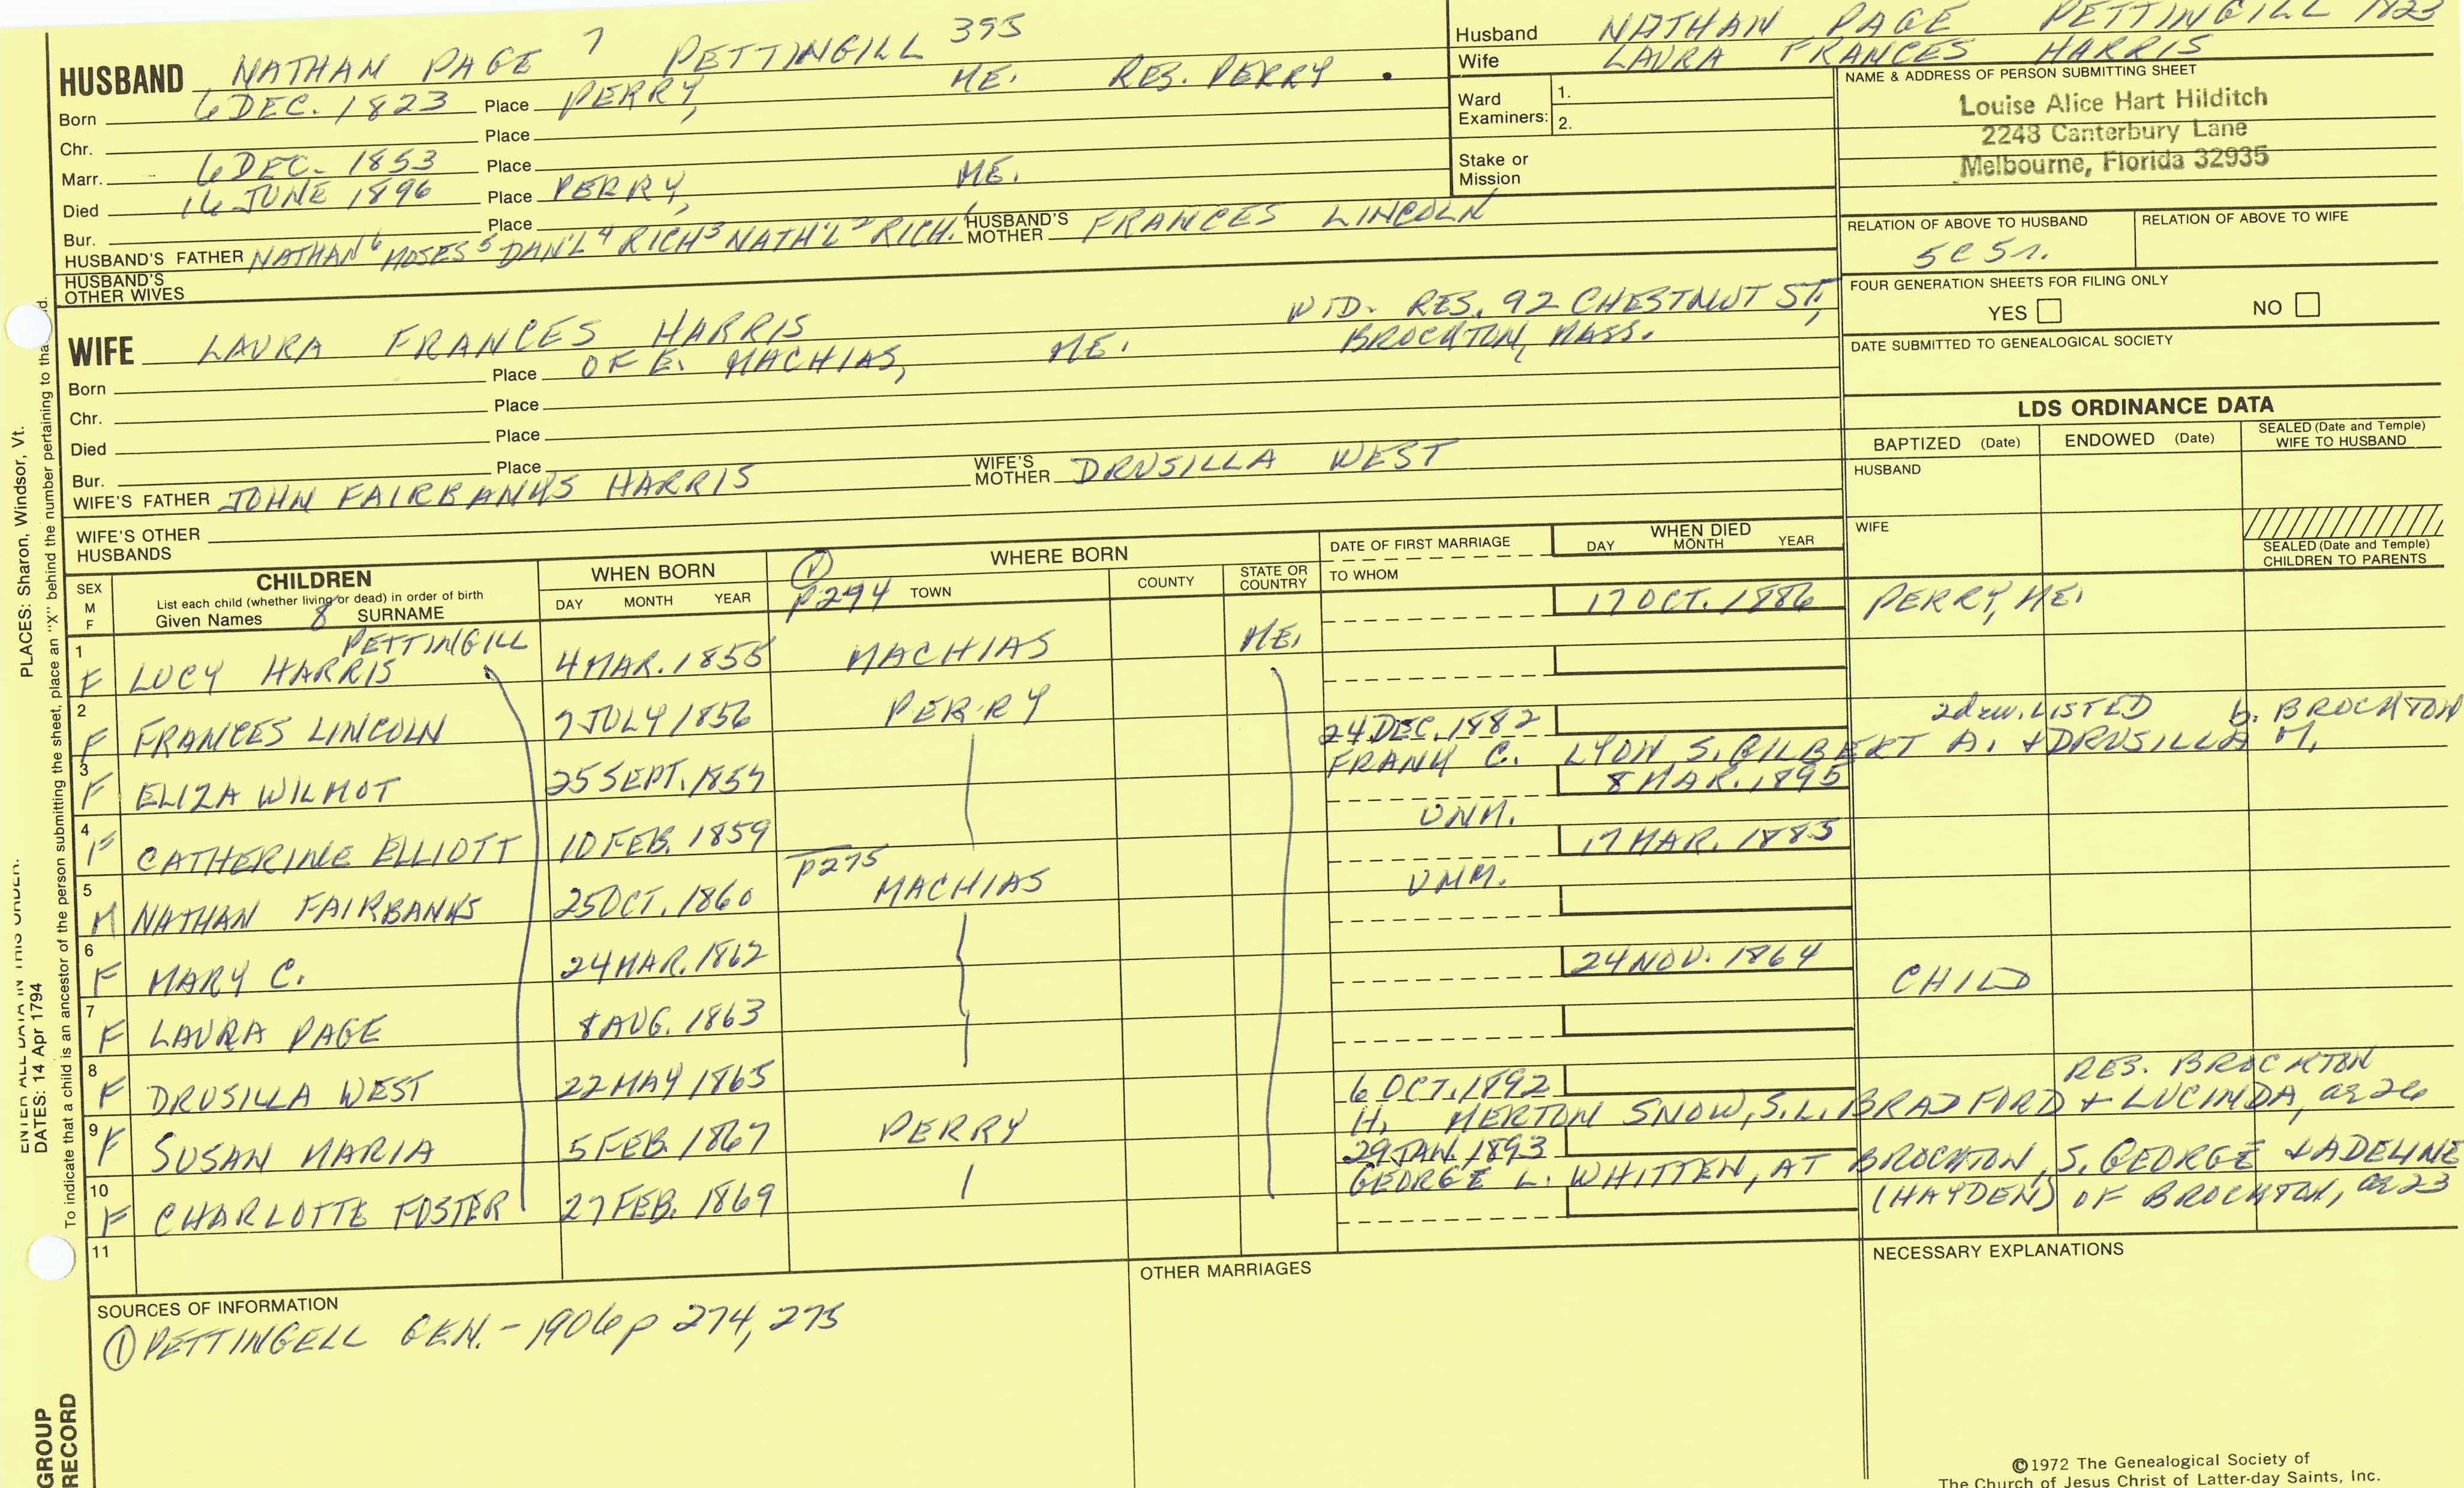 HUSBAND NATHAN PAGE 7 PETTINGILL 395
Born 6 DEC. 1823 Place PERRY, ME. RES. PERRY.
Chr. Place
Marr. 6 DEC. 1853 Place
Died 16 JUNE 1896 Place PERRY, ME.
Bur. Place
HUSBAND'S FATHER NATHAN 6 MOSES 5 DAN'L 4 RICH 3 NATH'L 2 RICH. 1 HUSBAND'S MOTHER FRANCES LINCOLN
HUSBAND'S OTHER WIVES
Husband NATHAN PAGE PETTINGILL 1823
Wife LAURA FRANCES HARRIS
Ward Examiners: 1.
2.
Stake or Mission
NAME & ADDRESS OF PERSON SUBMITTING SHEET
Louise Alice Hart Hilditch
2248 Canterbury Lane
Melbourne, Florida 32935
RELATION OF ABOVE TO HUSBAND RELATION OF ABOVE TO WIFE
5C5r.
FOUR GENERATION SHEETS FOR FILING ONLY
YES NO
DATE SUBMITTED TO GENEALOGICAL SOCIETY
WIFE LAURA FRANCES HARRIS WID. RES. 92 CHESTNUT ST,
BROCKTON, MASS.
Born Place OF E. MACHIAS, ME.
Chr. Place
Died Place
Bur. Place
WIFE'S FATHER JOHN FAIRBANKS HARRIS WIFE'S MOTHER DRUSILLA WEST
WIFE'S OTHER HUSBANDS
LDS ORDINANCE DATA
BAPTIZED (Date) ENDOWED (Date) SEALED (Date and Temple) WIFE TO HUSBAND
HUSBAND
WIFE
SEALED (Date and Temple) CHILDREN TO PARENTS
SEX M F
CHILDREN
List each child (whether living or dead) in order of birth
Given Names 8 SURNAME
WHEN BORN
DAY MONTH YEAR
WHERE BORN
1 p294 TOWN COUNTY STATE OR COUNTRY
DATE OF FIRST MARRIAGE
TO WHOM
WHEN DIED
DAY MONTH YEAR
PETTINGILL
1 F LUCY HARRIS 4 MAR. 1855 MACHIAS ME. 17 OCT. 1886 PERRY, ME.
2 F FRANCES LINCOLN 7 JULY 1856 PERRY
3 F ELIZA WILMOT 25 SEPT. 1857 24 DEC. 1882 2d w. LISTED b. BROCKTON
FRANK C. LYON, S. GILBERT A. + DRUSILLA M.
4 F CATHERINE ELLIOTT 10 FEB. 1859 UNM. 8 MAR. 1895
5 M NATHAN FAIRBANKS 25 OCT. 1860 p275 MACHIAS UNM. 17 MAR. 1885
6 F MARY C. 24 MAR. 1862
7 F LAURA PAGE 8 AUG. 1863 24 NOV. 1864 CHILD
8 F DRUSILLA WEST 22 MAY 1865
9 F SUSAN MARIA 5 FEB. 1867 PERRY 6 OCT. 1892 RES. BROCKTON
H. MERTON SNOW, S. L. BRADFORD + LUCINDA, ae 26
10 F CHARLOTTE FOSTER 27 FEB. 1869 29 JAN. 1893
GEORGE L. WHITTEN, AT BROCKTON, S. GEORGE + ADELINE
(HAYDEN) OF BROCKTON, ae 23
11
SOURCES OF INFORMATION
1 PETTINGELL GEN. - 1906 p 274, 275
OTHER MARRIAGES
NECESSARY EXPLANATIONS
©1972 The Genealogical Society of
The Church of Jesus Christ of Latter-day Saints, Inc.
PLACES: Sharon, Windsor, Vt.
DATES: 14 Apr 1794
To indicate that a child is an ancestor of the person submitting the sheet, place an "X" behind the number pertaining to that
GROUP
RECORD